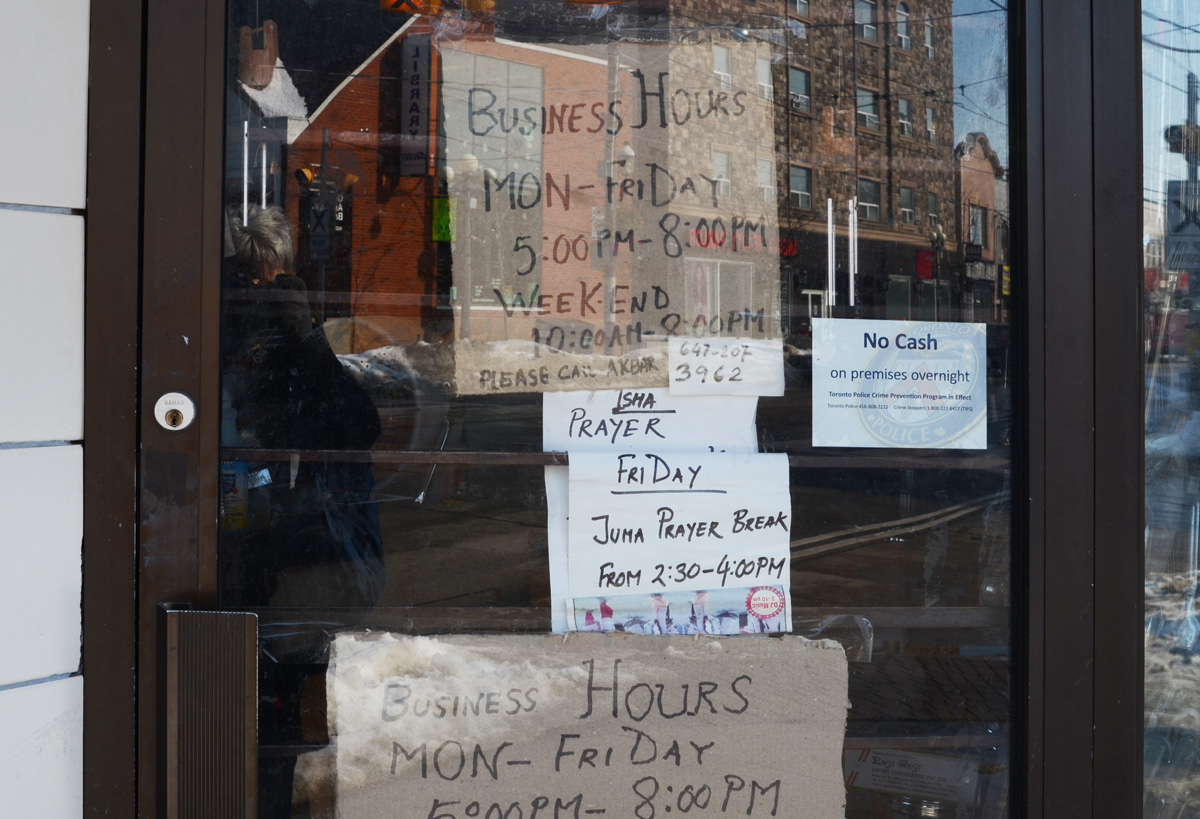 LIBRARY
BUSINESS HOURS
MON-FRIDAY
5:00PM-8:00PM
WEEK-END
10:00AM-8:00PM
PLEASE CALL AKBAR 647-207
3962
ISHA
PRAYER
FRIDAY
JUMA PRAYER BREAK
FROM 2:30-4:00PM
DJ Music
No Cash
on premises overnight
Toronto Police Crime Prevention Program in Effect
POLICE
BUSINESS HOURS
MON-FRIDAY
5:00PM-8:00PM